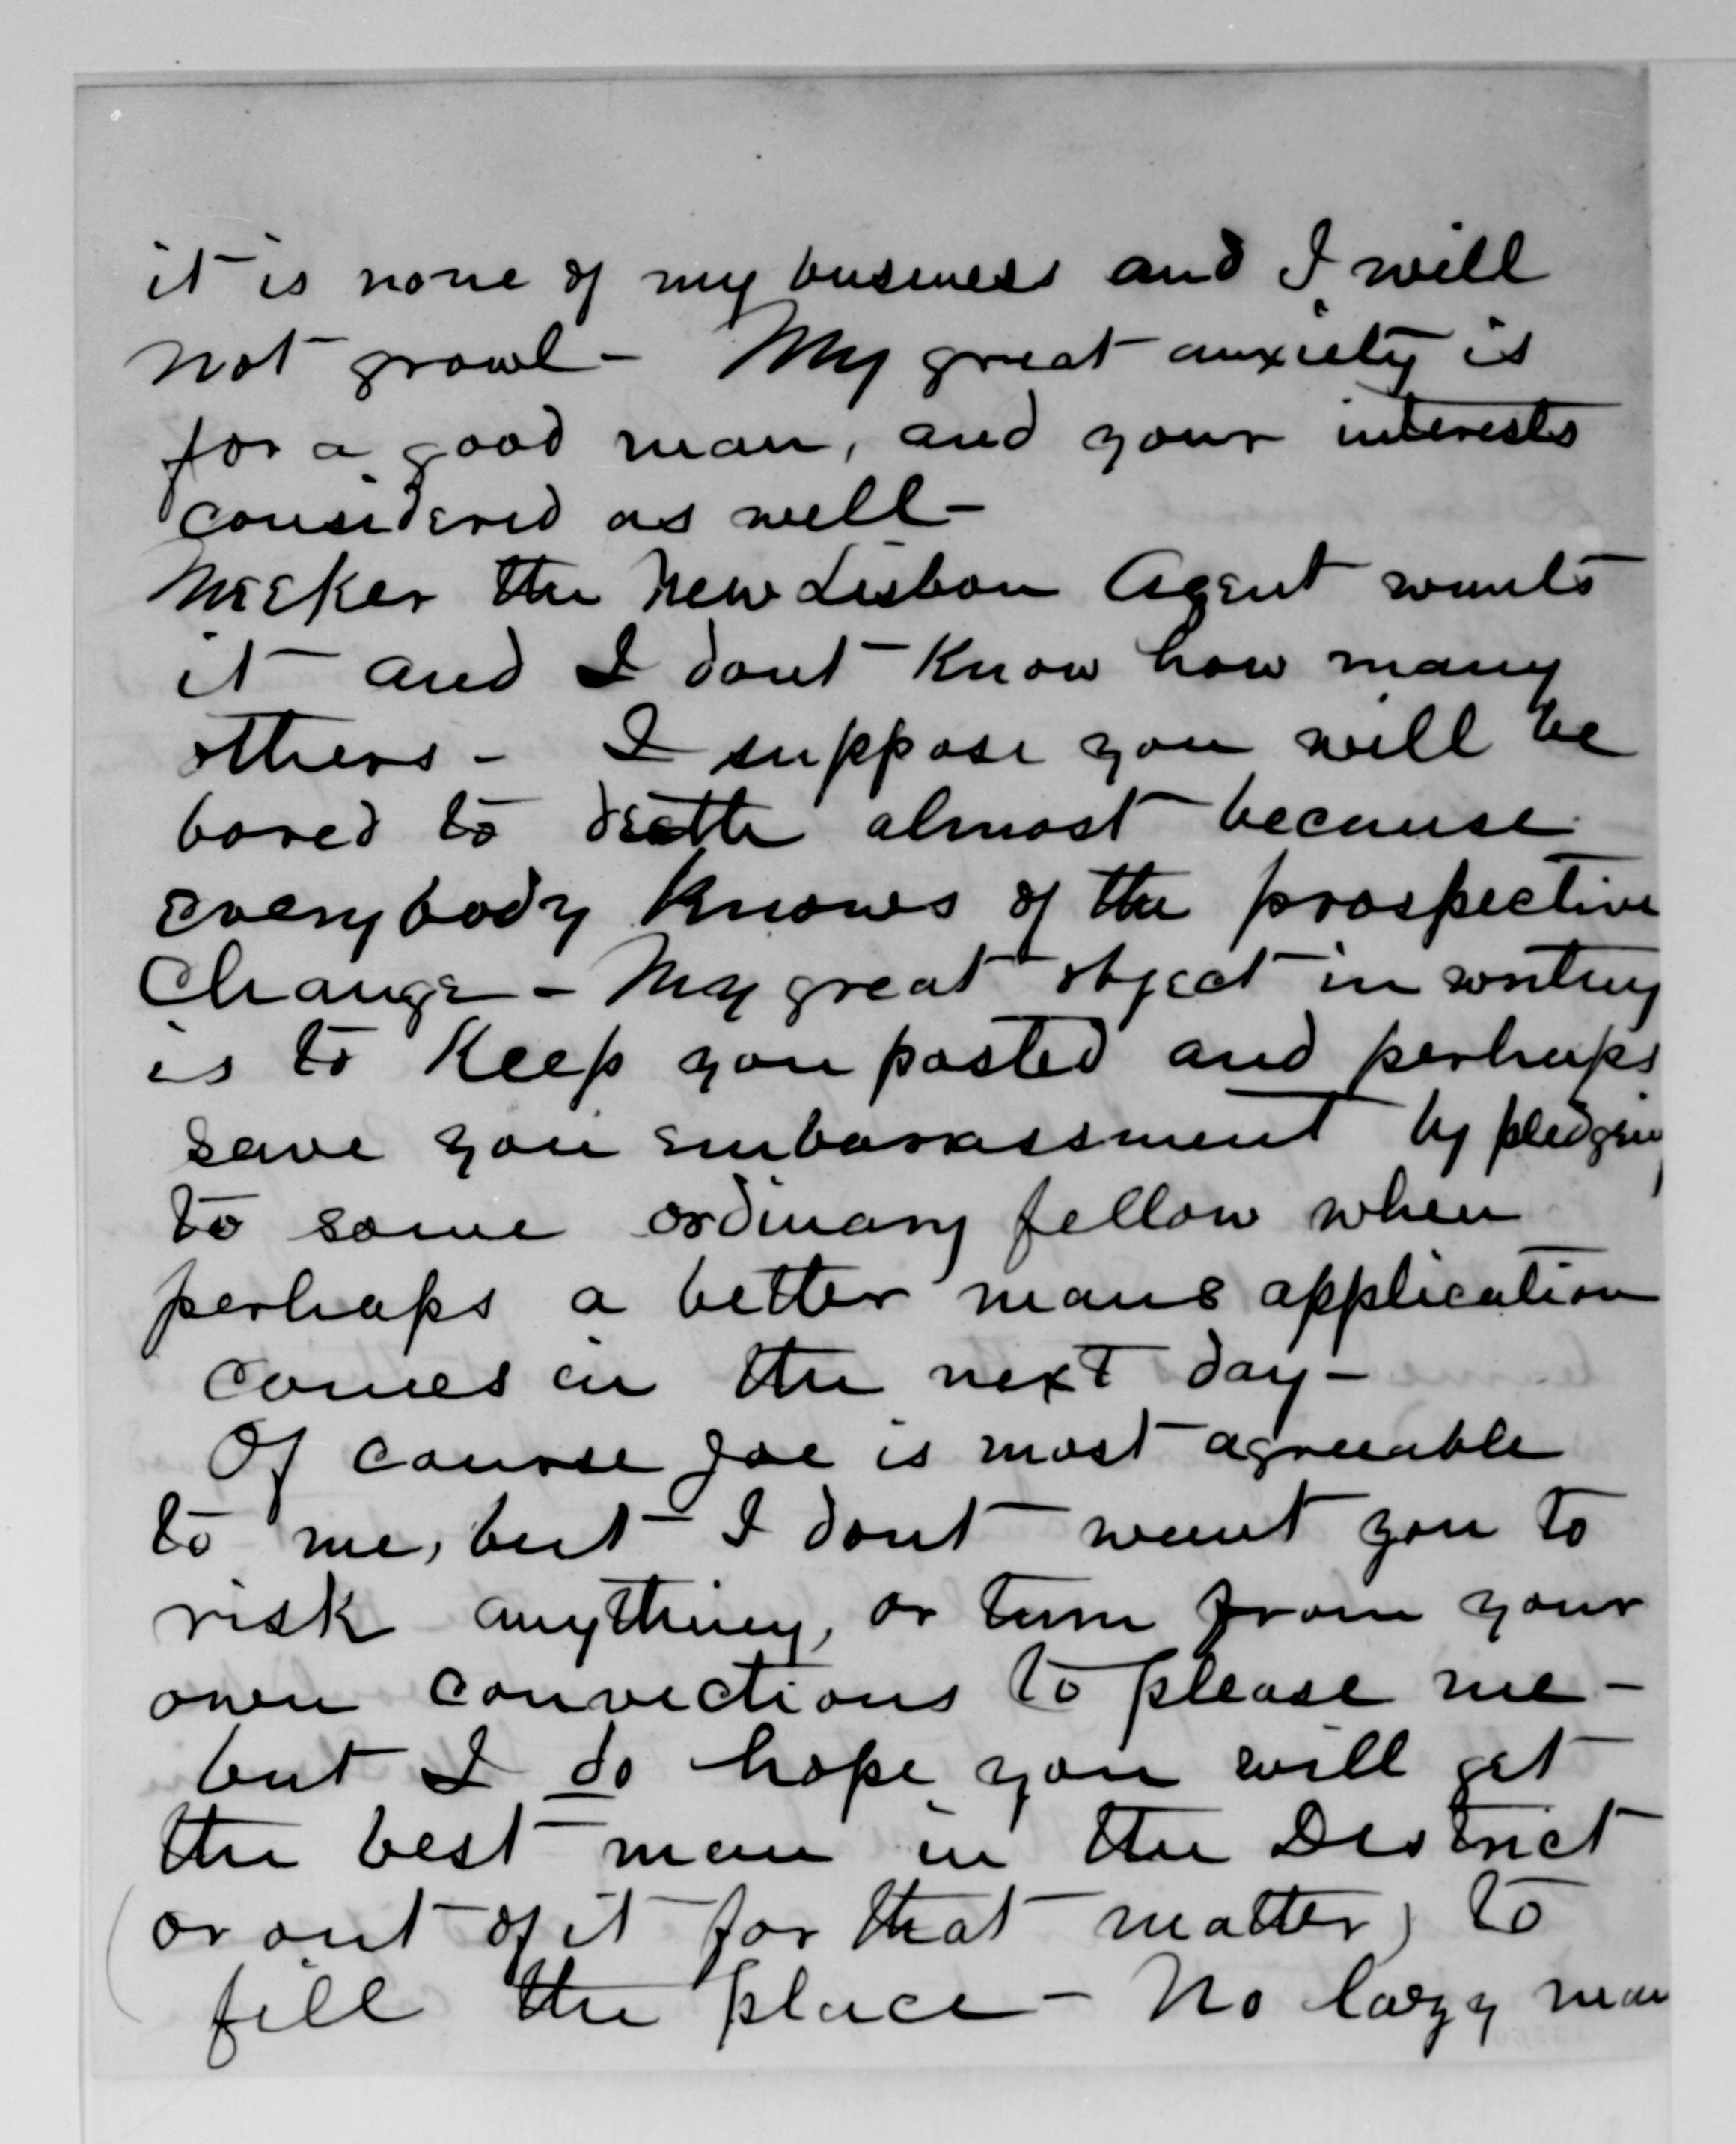 it is none of my business and I will
not growl - My great anxiety is
for a good man, and your interests
considered as well -
Meeker the New Lisbon Agent wants
it and I dont know how many
others - I suppose you will be
bored to death almost because
everybody knows of the prospective
change - My great object in writing
is to keep you posted and perhaps
save you embarassment by pledging
to some ordinary fellow when
perhaps a better mans application
comes in the next day -
Of course Joe is most agreeable
to me, but I dont want you to
risk anything, or turn from your
own convictions to please me -
but I do hope you will get
the best man in the District
(or out of it for that matter) to
fill the place - No lazy man